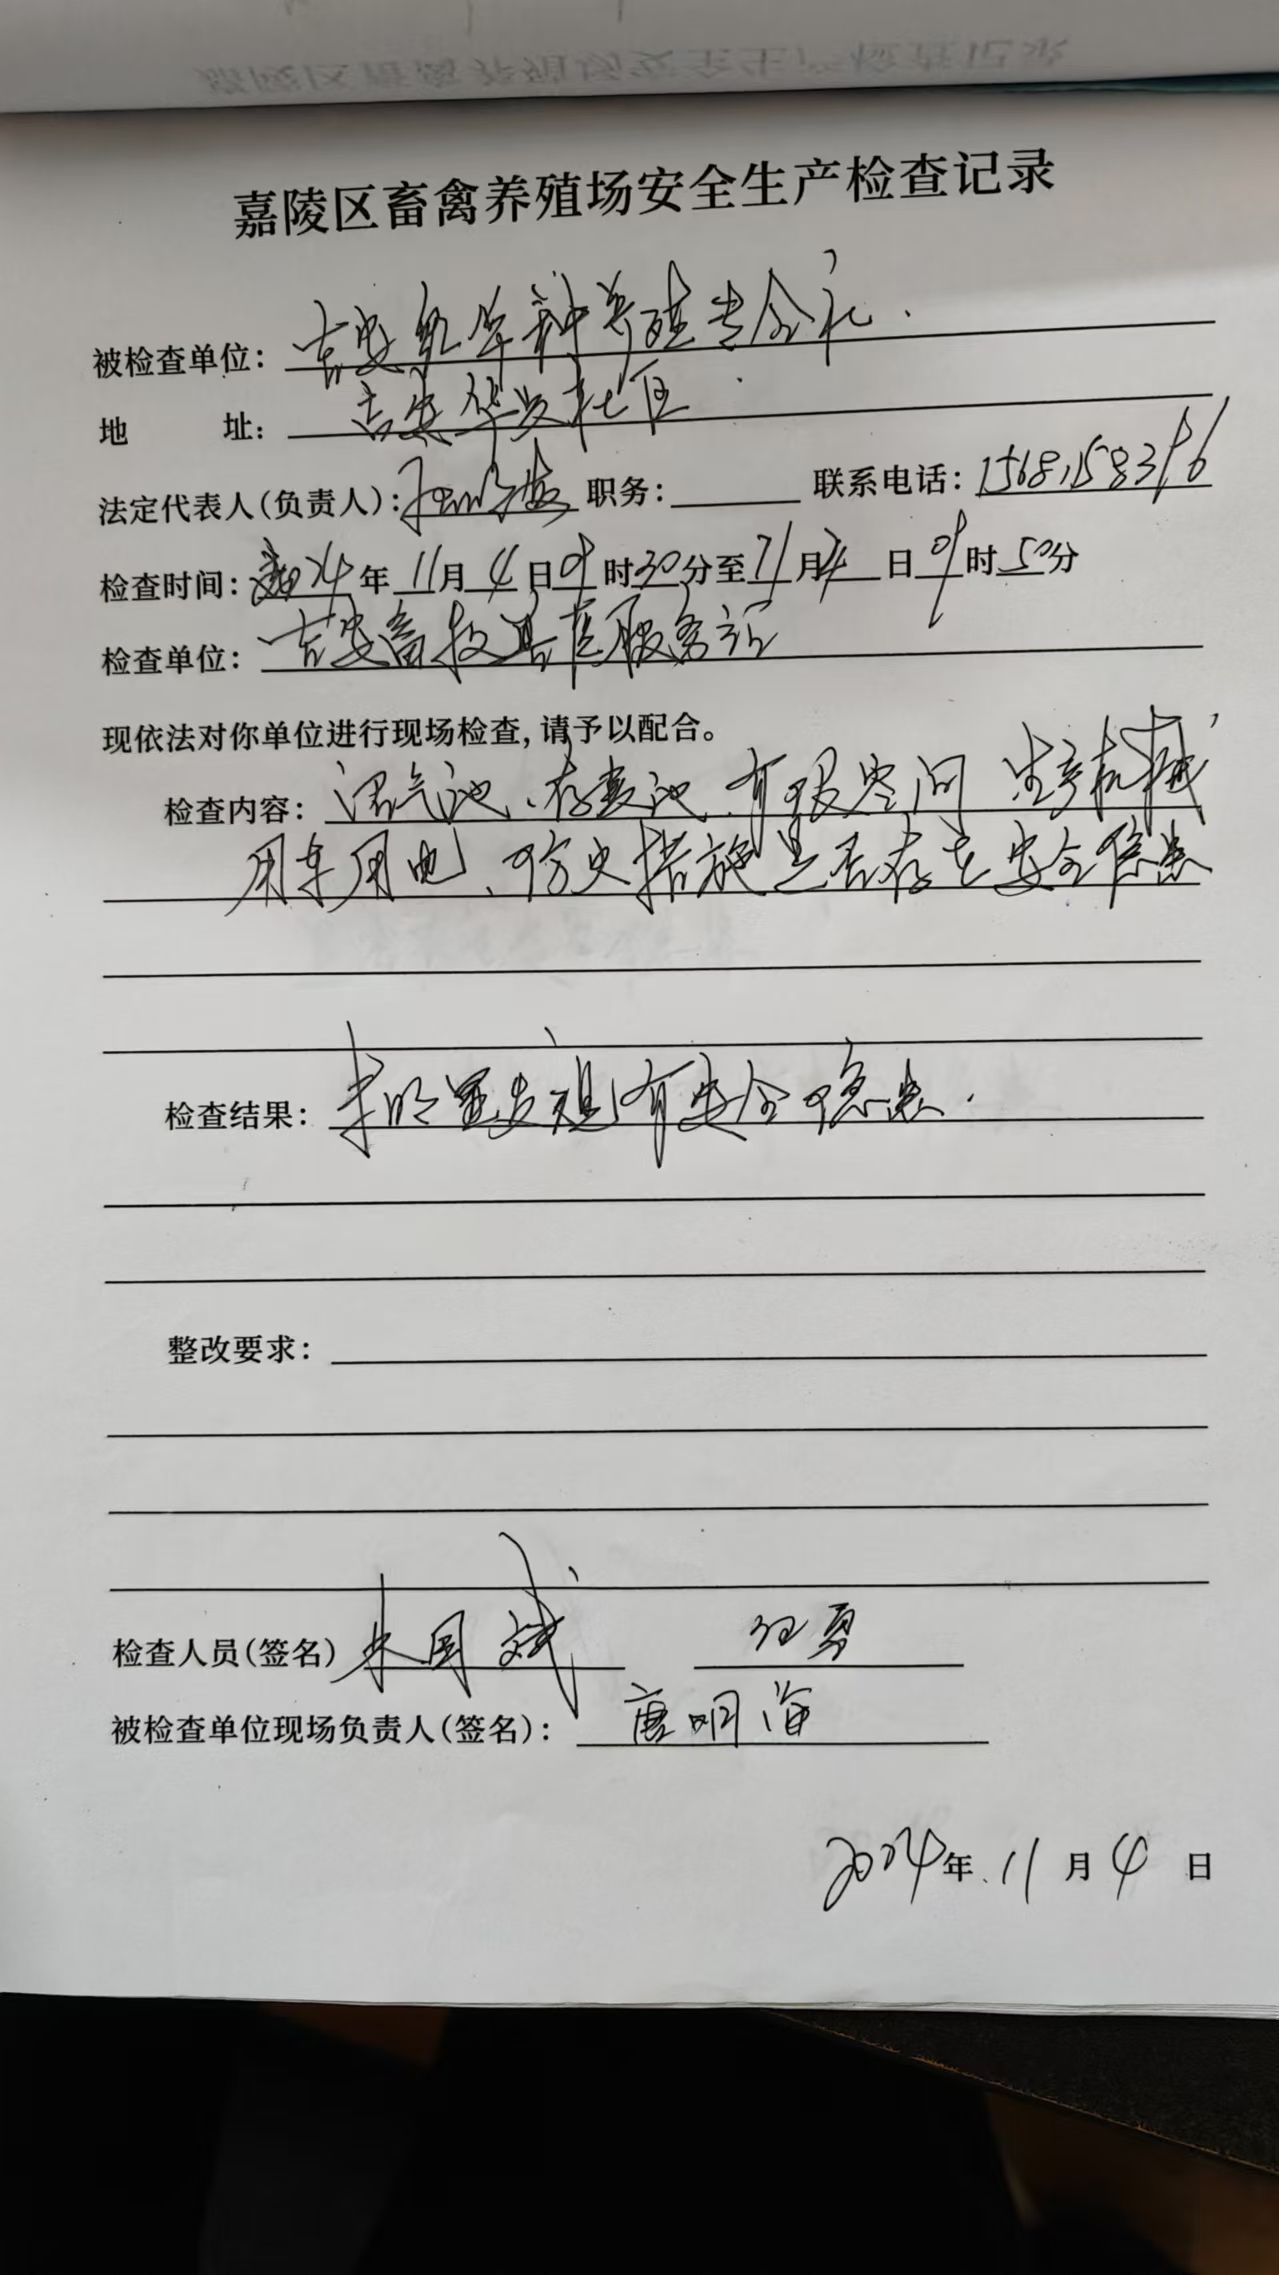 嘉陵区畜禽养殖场安全生产检查记录
被检查单位：吉安 种养殖专合社.
地 址：吉安华 社区
法定代表人（负责人）： 职务： 联系电话：
检查时间： 24年11月4日9时30分至11月4日9时50分
检查单位：吉安畜牧兽医服务站
现依法对你单位进行现场检查，请予以配合。
检查内容：沼气池、存粪池、有限空间 生产机械
用车用电、防火措施是否存在安全隐患
检查结果：未明显发现有安全隐患.
整改要求：
检查人员（签名） 国斌 任勇
被检查单位现场负责人（签名）：唐明海
2024年11月4日